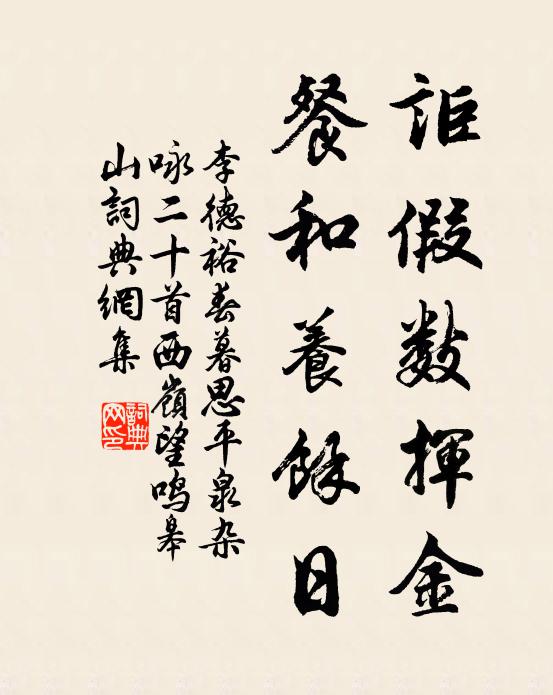 詎假數揮金
餐和養餘日
李德裕春暮思平泉杂
咏二十首西嶺望鸣皋
山詞典網集
詞典
网印